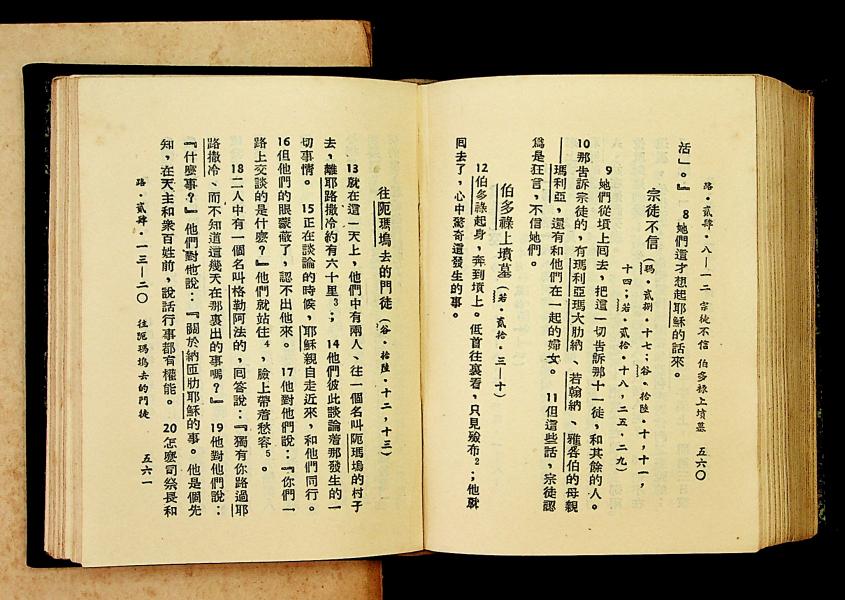 路·貳肆·八—一二 宗徒不信 伯多祿上墳墓 五六〇
活」。』 8她們這才想起耶穌的話來。
宗徒不信(瑪·貳捌·十七;谷·拾陸·十,十一,
十四;若·貳拾·十八,二五,二九)
9她們從墳上囘去,把這一切告訴那十一徒,和其餘的人。
10那告訴宗徒的,有瑪利亞瑪大肋納、若翰納、雅各伯的母親
瑪利亞,還有和他們在一起的婦女。 11但這些話,宗徒認
爲是狂言,不信她們。
伯多祿上墳墓(若·貳拾·三—十)
12伯多祿起身,奔到墳上。低首往裏看,只見殮布2;他就
囘去了,心中驚奇這發生的事。
往阨瑪塢去的門徒(谷·拾陸·十二,十三)
13就在這一天上,他們中有兩人、往一個名叫阨瑪塢的村子
去,離耶路撒冷約有六十里3; 14他們彼此談論着那發生的一
切事情。 15正在談論的時候,耶穌親自走近來,和他們同行。
16但他們的眼蒙蔽了,認不出他來。 17他對他們說:『你們一
路上交談的是什麼?』他們就站住4,臉上帶着愁容5。
18二人中有一個名叫格勒阿法的,囘答說:『獨有你路過耶
路撒冷、而不知道這幾天在那裏出的事嗎?』 19他對他們說:
『什麼事?』他們對他說:『關於納匝肋耶穌的事。他是個先
知,在天主和衆百姓前,說話行事都有權能。 20怎麼司祭長和
路·貳肆·一三—二〇 往阨瑪塢去的門徒 五六一